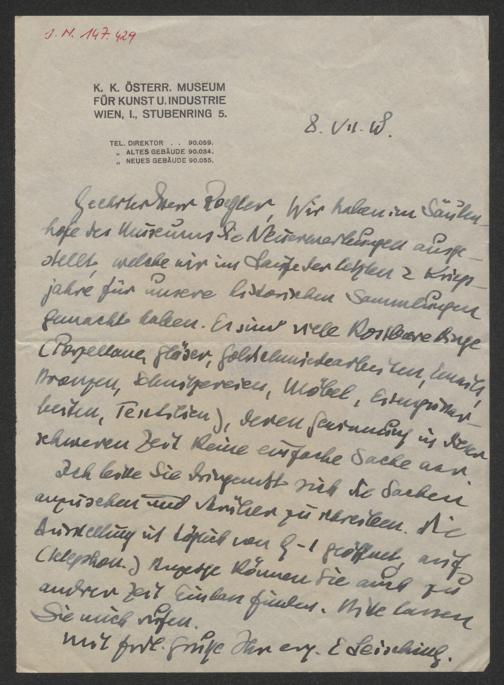 J. N. 147.429
K. K. ÖSTERR. MUSEUM
FÜR KUNST U. INDUSTRIE
WIEN, I., STUBENRING 5.
8. VII. 18.
TEL. DIREKTOR . . 90.059.
„ ALTES GEBÄUDE 90.034.
„ NEUES GEBÄUDE 90.055.
Geehrter Herr Wir haben im Säulen-
hofe des Museums die Neuerwerbungen ausge-
stellt, welche wir im Laufe der letzten 2 Kriegs-
jahre für unsere historischen Sammlungen
gemacht haben. Es sind viele kostbare Dinge
(Porzellane, Gläser, Goldschmiedearbeiten, Emails,
Bronzen, Schnitzereien, Möbel,
Textilien), deren Gewinnung in dieser
schweren Zeit keine einfache Sache war.
Ich bitte Sie dringendst sich die Sachen
anzusehen und darüber zu schreiben. Die
Ausstellung ist täglich von 9-1 geöffnet, auf
(telephon.) Anzeige können Sie auch zu
andrer Zeit Einlass finden. Bitte lassen
Sie mich rufen.
Mit frdl. Gruße Ihr erg. E Leisching.